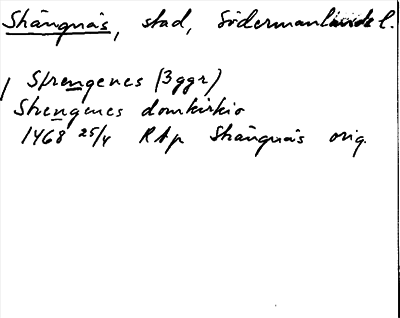 Strängnäs, stad, Södermanlands l.
Strengenes (3 ggr)
Strengenes domkirkio
1468 25/4 RAp Strängnäs orig.